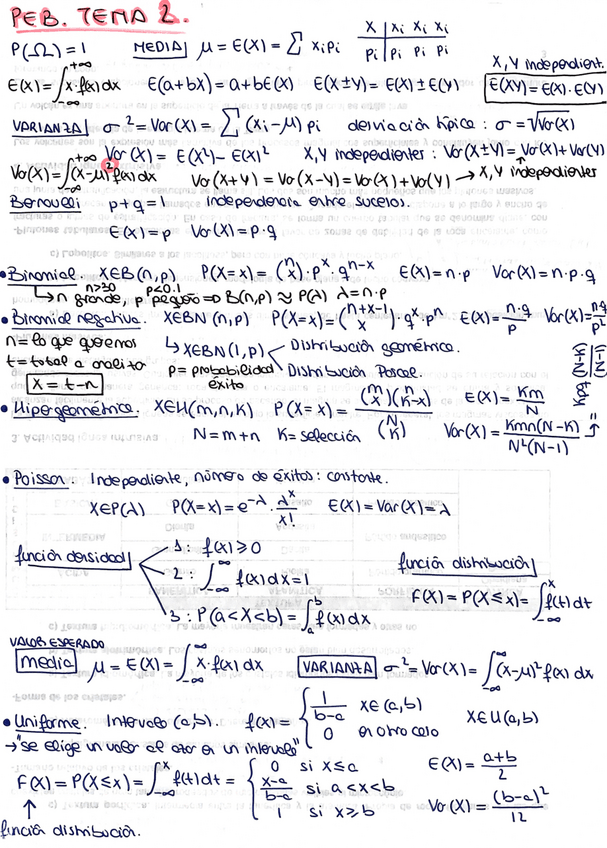 PEB. TEMA 2.
P(Ω)=1 MEDIA μ = E(X) = ∑ xipi
X | xi xi xi
Pi | pi pi pi
E(X)=∫_{-∞}^{+∞} x·f(x)dx E(a+bX) = a+bE(X) E(X±Y) = E(X)±E(Y)
X, Y independient.
E(XY)=E(X)·E(Y)
VARIANZA σ² = Var(X) = ∑(xi-μ)pi desviación típica: σ=√Var(X)
Var(X) = E(X²)-E(X)² X,Y independientes: Var(X±Y)=Var(X)+Var(Y)
Var(X)=∫_{-∞}^{+∞}(x-μ)²f(x)dx Var(X+Y) = Var(X-Y)=Var(X)+Var(Y) → X,Y independientes
Bernouelli p+q=1 Independencia entre sucesos.
E(X)=p Var(X)=p·q
• Binomial. X∈B(n,p) P(X=x)=(n x)·p^x·q^{n-x} E(X)=n·p Var(X)=n·p·q
n>30 p<0.1
↳ n grande, p pequeño ⇒ B(n,p) ≈ P(λ) λ=n·p
• Binomial negativa. X∈BN(n,p) P(X=x)=(n+x-1 x)·q^x·p^n E(X)=n·q/p Var(X)=nq/p²
n=lo que queremos ↳ X∈BN(1,p) Distribución geométrica.
t=total a analizar p=probabilidad éxito Distribución Pascal.
X = t-n
• Hipergeométrica. X∈H(m,n,K) P(X=x) = (m x)(n K-x)/(N K) E(X)=Km/N
N=m+n K=selección Var(X)=Kmn(N-K)/N²(N-1)
• Poisson. Independiente, número de éxitos: constante.
X∈P(λ) P(X=x)=e^{-λ}·λ^x/x! E(X)=Var(X)=λ
función densidad
1: f(x)≥0
2: ∫_{-∞}^{∞} f(x)dx=1
3: P(a<X<b)=∫_a^b f(x)dx
función distribución
F(X)=P(X≤x)=∫_{-∞}^x f(t)dt
VALOR ESPERADO
media μ=E(X)=∫_{-∞}^{∞} x·f(x)dx VARIANZA σ²=Var(X)=∫_{-∞}^{∞}(x-μ)²f(x)dx
• Uniforme. Intervalo (a,b). f(x)= { 1/b-a x∈(a,b) X∈U(a,b)
0 en otro caso
→"se elige un valor al azar en un intervalo"
F(X)=P(X≤x)=∫_{-∞}^x f(t)dt= { 0 si x≤a E(X)=a+b/2
x-a/b-a si a<x<b
1 si x≥b Var(X)=(b-a)²/12
↑
función distribución.